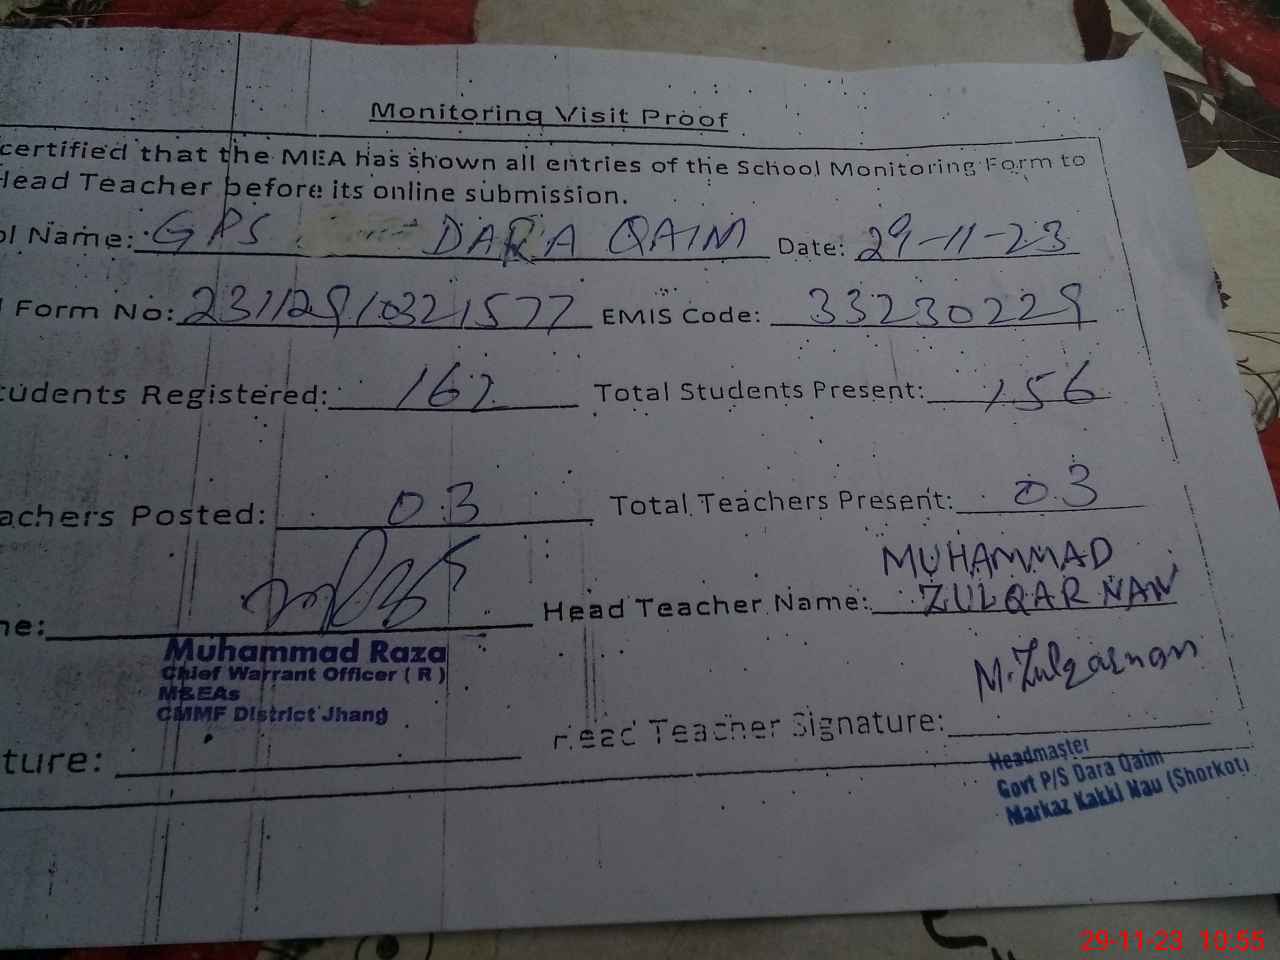 Monitoring Visit Proof
certified that the MEA has shown all entries of the School Monitoring Form to
Head Teacher before its online submission.
ol Name: GPS DARA QAIM Date: 29-11-23
Form No: 23112910321577 EMIS Code: 33230229
tudents Registered: 162 Total Students Present: 156
achers Posted: 03 Total Teachers Present: 03
MUHAMMAD
ne: Head Teacher Name: ZULQARNAN
Muhammad Raza
Chief Warrant Officer ( R )
M&EAs
CMMF District Jhang
M. Zulqarnan
ture: Head Teacher Signature:
Headmaster
Govt P/S Dara Qaim
Markaz Kakki Nau (Shorkot)
29-11-23 10:55